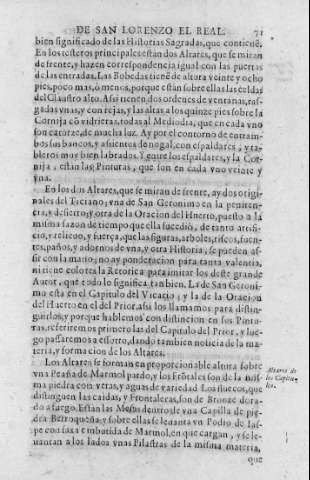 DE SAN LORENZO EL REAL. 71
bien significado de las Historias Sagradas, que contienẽ.
En los testeros principales estàn dos Altares, que se miran
de frente, y hazen correspondencia igual con las puertas
de las entradas. Las Bobedas tienẽ de altura veinte y ocho
pies, poco mas, ò menos, porque estàn sobre ellas las celdas
del Claustro alto. Assi tienen dos ordenes de ventanas, ras-
gadas vnas, y con rejas, y las altas à los quinze pies sobre la
Cornija cõ vidrieras, todas al Mediodia, que en cada vno
son catorze, de mucha luz. Ay por el contorno de entram-
bos sus bancos, y assientos de nogal, con espaldares, y ta-
bleros muy bien labrados. Y entre los espaldares, y la Cor-
nija, estàn las Pinturas, que son en cada vno veinte y
vna.
En los dos Altares, que se miran de frente, ay dos origi-
nales del Ticiano; vna de San Geronimo en la peniten-
cia, y desierto; y otra de la Oracion del Huerto, puesto à la
misma sazon de tiempo que ella sucediò, de tanto artifi-
cio, y relieve, y fuerça, que las figuras, arboles, riscos, fuen-
tes, paños, y adornos de vna, y otra Historia, se pueden as-
sir con la mano; no ay ponderacion para tanta valentia,
ni tiene colores la Retorica para imitar los deste grande
Autor, que todo lo significa tambien. La de San Geroni-
mo està en el Capitulo del Vicario; y la de la Oracion
del Huerto en el del Prior, assi los llamamos para distin-
guirlos, y porque hablemos con distincion en sus Pintu-
ras, referiremos primero las del Capitulo del Prior, y lue-
go passaremos à essotro, dando tambien noticia de la ma-
teria, y formacion de los Altares.
Los Altares se forman en proporcionable altura sobre
vna Peaña de Marmol pardo, y los Frõtales son de la mis-
ma piedra con vetas, y aguas de variedad. Los huecos, que
distinguen las caidas, y Frontaleras, son de Bronze dora-
do à fuego. Estàn las Mesas dentro de vna Capilla de pie-
dra Berroqueña, y sobre ellas se levanta vn Podio de Jas-
pe con faxa embutida de Marmol, en que cargan, y se le-
uantan à los lados vnas Pilastras de la misma materia,
que
Altares de
los Capitu-
los.